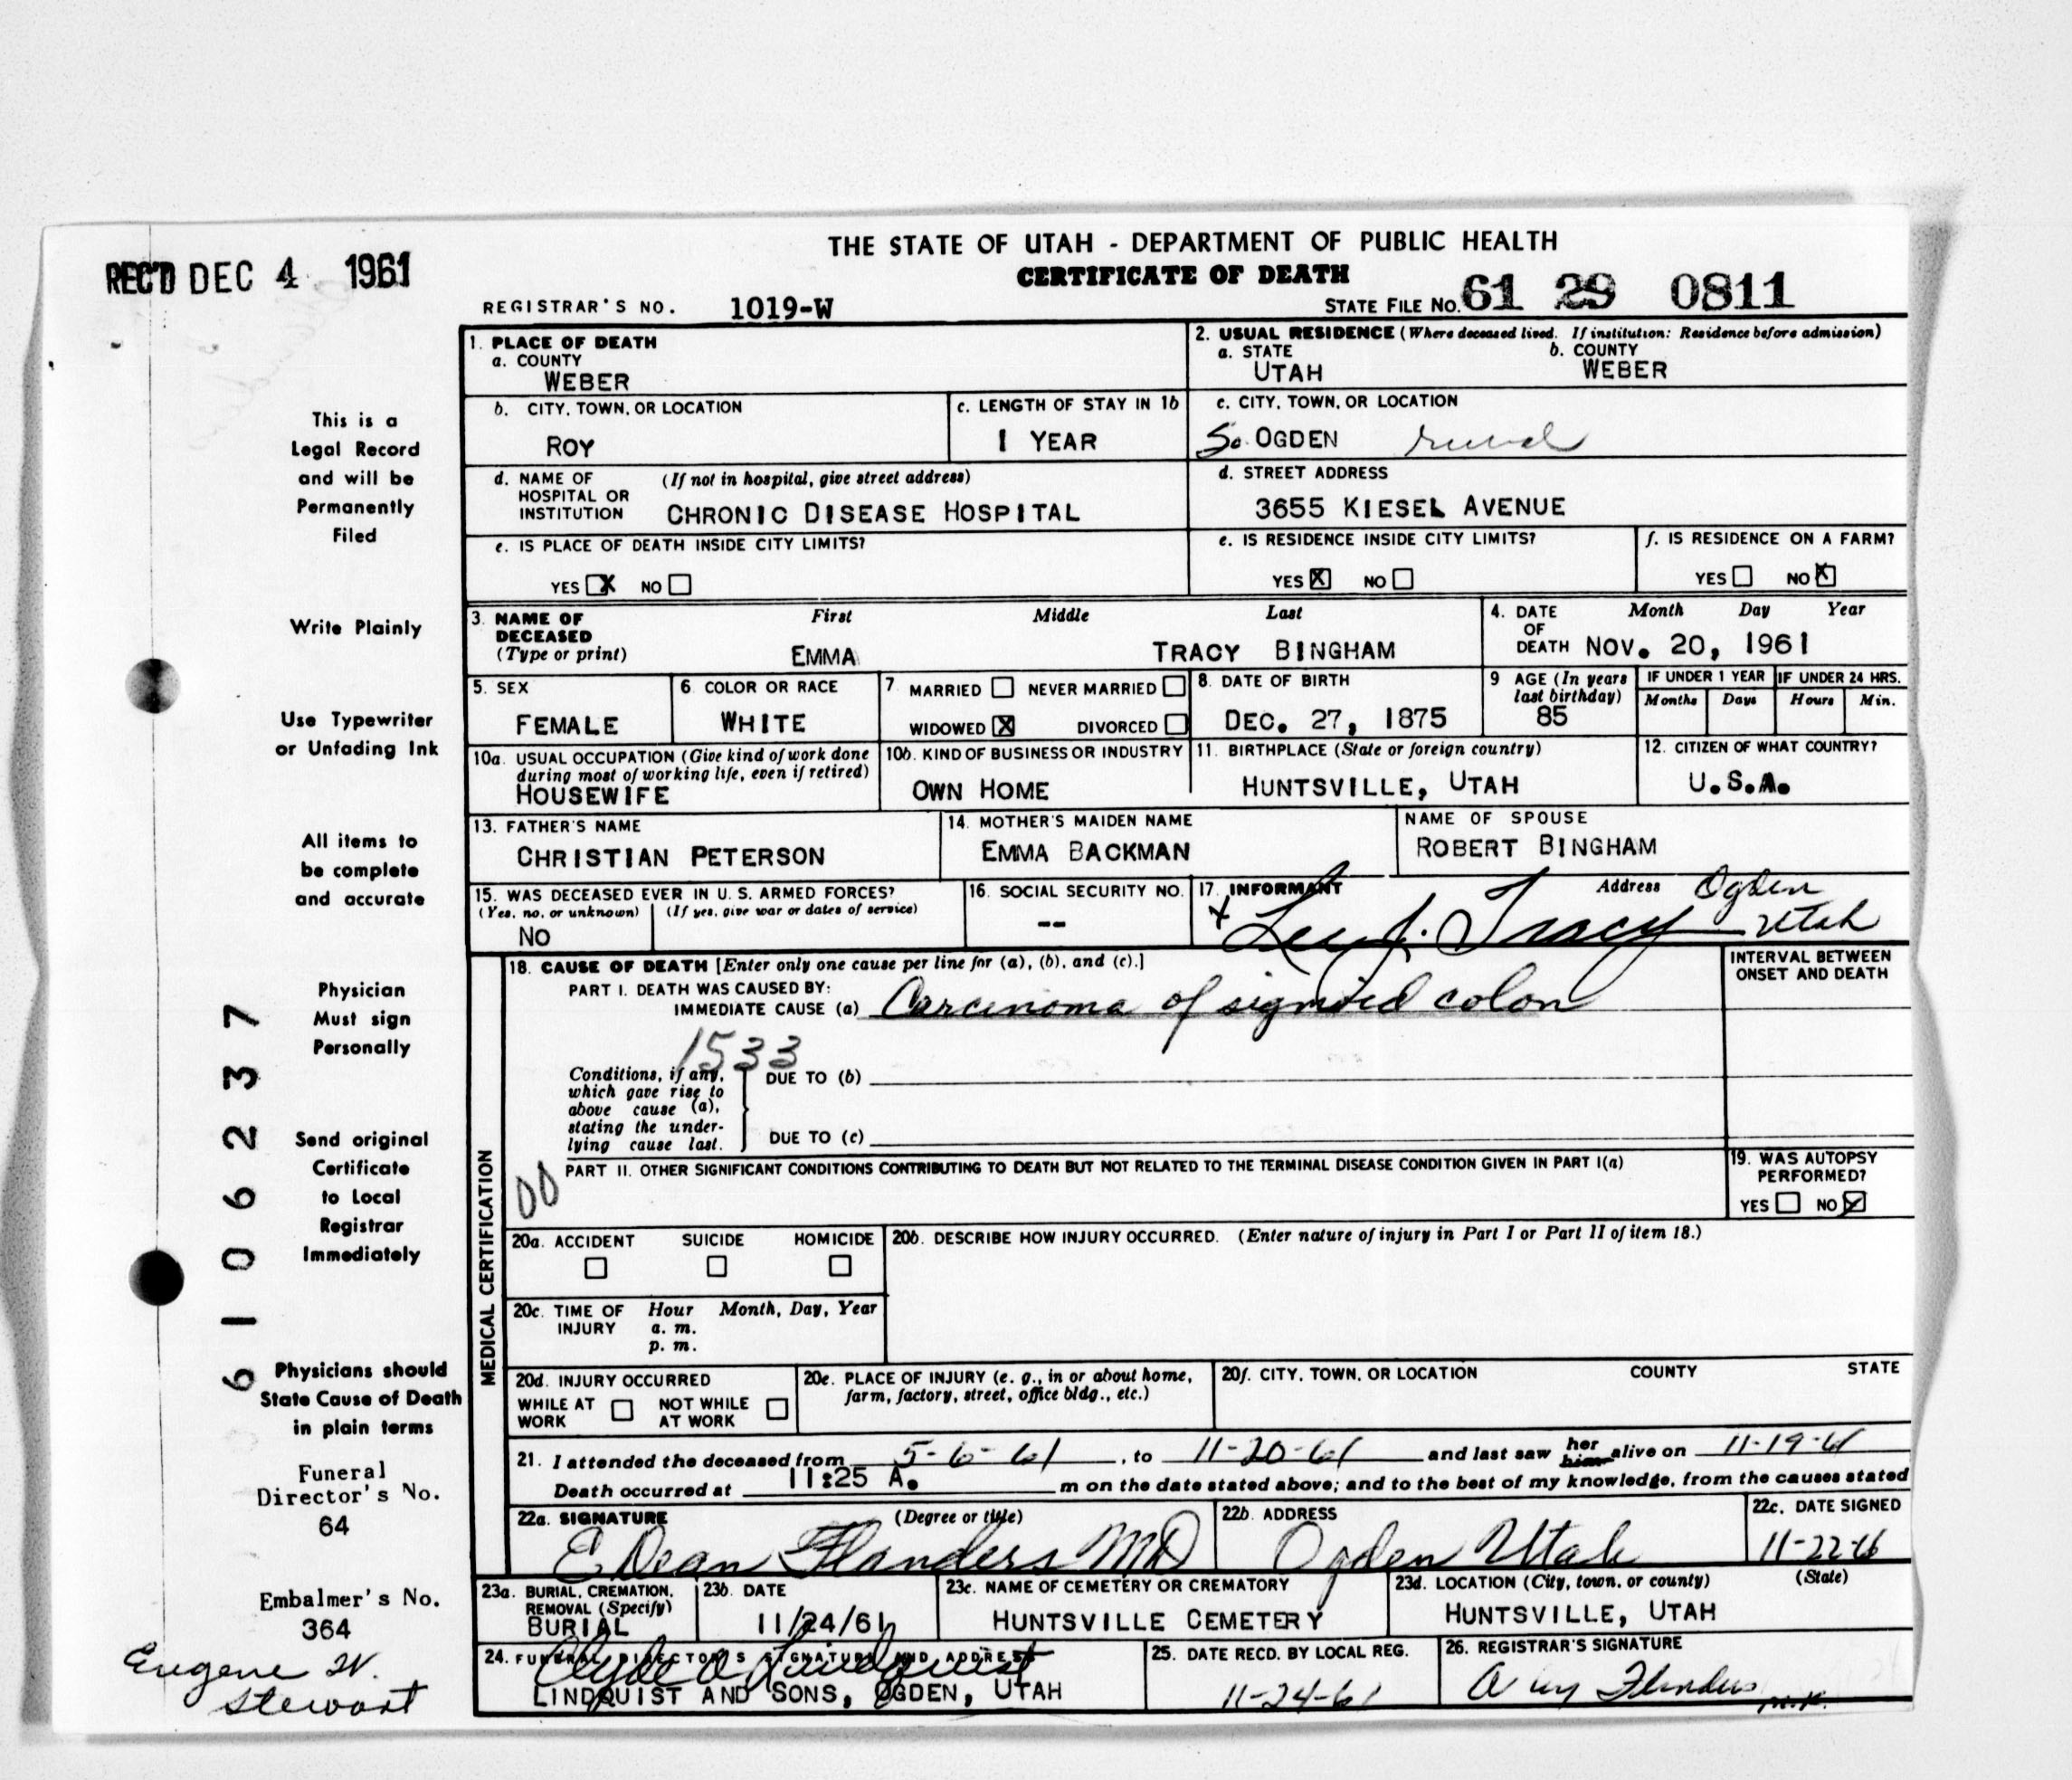 THE STATE OF UTAH - DEPARTMENT OF PUBLIC HEALTH
CERTIFICATE OF DEATH
REC'D DEC 4 1961
REGISTRAR'S NO. 1019-W
STATE FILE NO. 61 29 0811
1. PLACE OF DEATH
a. COUNTY
WEBER
2. USUAL RESIDENCE (Where deceased lived. If institution: Residence before admission)
a. STATE b. COUNTY
UTAH WEBER
b. CITY, TOWN, OR LOCATION
ROY
c. LENGTH OF STAY IN 1b
1 YEAR
c. CITY, TOWN, OR LOCATION
So. OGDEN rural
d. NAME OF HOSPITAL OR INSTITUTION (If not in hospital, give street address)
CHRONIC DISEASE HOSPITAL
d. STREET ADDRESS
3655 KIESEL AVENUE
e. IS PLACE OF DEATH INSIDE CITY LIMITS?
YES X NO
e. IS RESIDENCE INSIDE CITY LIMITS?
YES X NO
f. IS RESIDENCE ON A FARM?
YES NO X
3. NAME OF DECEASED (Type or print) First Middle Last
EMMA TRACY BINGHAM
4. DATE OF DEATH Month Day Year
NOV. 20, 1961
5. SEX
FEMALE
6. COLOR OR RACE
WHITE
7. MARRIED NEVER MARRIED
WIDOWED X DIVORCED
8. DATE OF BIRTH
DEC. 27, 1875
9 AGE (In years last birthday)
85
IF UNDER 1 YEAR IF UNDER 24 HRS.
Months Days Hours Min.
10a. USUAL OCCUPATION (Give kind of work done during most of working life, even if retired)
HOUSEWIFE
10b. KIND OF BUSINESS OR INDUSTRY
OWN HOME
11. BIRTHPLACE (State or foreign country)
HUNTSVILLE, UTAH
12. CITIZEN OF WHAT COUNTRY?
U.S.A.
13. FATHER'S NAME
CHRISTIAN PETERSON
14. MOTHER'S MAIDEN NAME
EMMA BACKMAN
NAME OF SPOUSE
ROBERT BINGHAM
15. WAS DECEASED EVER IN U. S. ARMED FORCES?
(Yes, no, or unknown) (If yes, give war or dates of service)
NO
16. SOCIAL SECURITY NO.
--
17. INFORMANT Address
x J. Tracy Ogden Utah
MEDICAL CERTIFICATION
18. CAUSE OF DEATH [Enter only one cause per line for (a), (b), and (c).]
INTERVAL BETWEEN ONSET AND DEATH
PART I. DEATH WAS CAUSED BY:
IMMEDIATE CAUSE (a) Carcinoma of sigmoid colon
1533
Conditions, if any, which gave rise to above cause (a), stating the under-lying cause last.
DUE TO (b)
DUE TO (c)
PART II. OTHER SIGNIFICANT CONDITIONS CONTRIBUTING TO DEATH BUT NOT RELATED TO THE TERMINAL DISEASE CONDITION GIVEN IN PART I(a)
00
19. WAS AUTOPSY PERFORMED?
YES NO X
20a. ACCIDENT SUICIDE HOMICIDE
20b. DESCRIBE HOW INJURY OCCURRED. (Enter nature of injury in Part I or Part II of item 18.)
20c. TIME OF INJURY Hour Month, Day, Year
a. m.
p. m.
20d. INJURY OCCURRED
WHILE AT WORK NOT WHILE AT WORK
20e. PLACE OF INJURY (e. g., in or about home, farm, factory, street, office bldg., etc.)
20f. CITY, TOWN, OR LOCATION COUNTY STATE
21. I attended the deceased from 5-6-61, to 11-20-61 and last saw her him alive on 11-19-61
Death occurred at 11:25 A. m on the date stated above; and to the best of my knowledge, from the causes stated
22a. SIGNATURE (Degree or title)
E Dean Flanders MD
22b. ADDRESS
Ogden Utah
22c. DATE SIGNED
11-22-61
23a. BURIAL, CREMATION, REMOVAL (Specify)
BURIAL
23b. DATE
11/24/61
23c. NAME OF CEMETERY OR CREMATORY
HUNTSVILLE CEMETERY
23d. LOCATION (City, town, or county) (State)
HUNTSVILLE, UTAH
24. FUNERAL DIRECTOR'S SIGNATURE AND ADDRESS
Clyde O Lindquist
LINDQUIST AND SONS, OGDEN, UTAH
25. DATE RECD. BY LOCAL REG.
11-24-61
26. REGISTRAR'S SIGNATURE
Flanders
This is a
Legal Record
and will be
Permanently
Filed
Write Plainly
Use Typewriter
or Unfading Ink
All items to
be complete
and accurate
Physician
Must sign
Personally
Send original
Certificate
to Local
Registrar
Immediately
Physicians should
State Cause of Death
in plain terms
61 06237
Funeral
Director's No.
64
Embalmer's No.
364
Eugene W.
Stewart